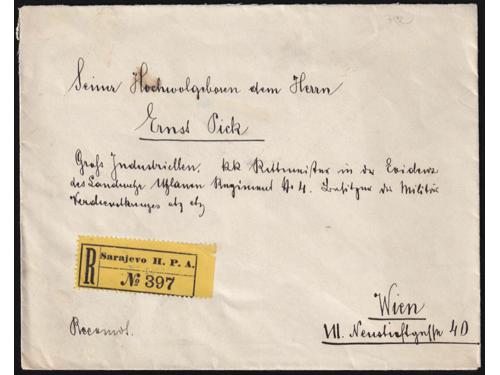 Seiner Hochwolgeboren dem Herrn
Ernst Pick
Groß Industriellen. kk Rittmeister in der Evidenz
des Landwehr Uhlanen Regiment No 4. Besitzer des Militär
Verdienstkreuzes etz etz
Sarajevo H. P. A.
R
№ 397
Wien
Recomd.
VII. Neustiftgasse 40